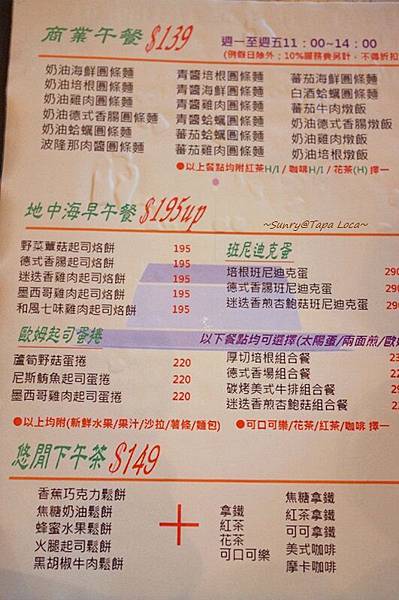 商業午餐 $139
週一至週五11：00~14：00
(例假日除外；10%服務費另計，不得折扣
奶油海鮮圓條麵
奶油培根圓條麵
奶油雞肉圓條麵
奶油德式香腸圓條麵
奶油蛤蠣圓條麵
波隆那肉醬圓條麵
青醬培根圓條麵
青醬海鮮圓條麵
青醬雞肉圓條麵
青醬蛤蠣圓條麵
蕃茄蛤蠣圓條麵
蕃茄雞肉圓條麵
蕃茄海鮮圓條麵
白酒蛤蠣圓條麵
蕃茄牛肉燉飯
奶油德式香腸燉飯
奶油雞肉燉飯
奶油培根燉飯
●以上餐點均附紅茶H/I / 咖啡H/I / 花茶(H) 擇一
地中海早午餐 $195up
~Sunry@Tapa Loca~
野菜蕈菇起司烙餅 195
德式香腸起司烙餅 195
迷迭香雞肉起司烙餅 195
墨西哥雞肉起司烙餅 195
和風七味雞肉起司烙餅 195
班尼迪克蛋
培根班尼迪克蛋 290
德式香腸班尼迪克蛋
迷迭香煎杏鮑菇班尼迪克蛋
歐姆起司蛋捲
蘆筍野菇蛋捲 220
尼斯鮪魚起司蛋捲 220
墨西哥雞肉起司蛋捲 220
以下餐點均可選擇(太陽蛋/兩面煎/歐姆
厚切培根組合餐
德式香場組合餐
碳烤美式牛排組合餐
迷迭香煎杏鮑菇組合餐
●以上均附(新鮮水果/果汁/沙拉/薯條/麵包)
●可口可樂/花茶/紅茶/咖啡 擇一
悠閒下午茶 $149
香蕉巧克力鬆餅
焦糖奶油鬆餅
蜂蜜水果鬆餅
火腿起司鬆餅
黑胡椒牛肉鬆餅
+
拿鐵
紅茶
花茶
可口可樂
焦糖拿鐵
紅茶拿鐵
可可拿鐵
美式咖啡
摩卡咖啡